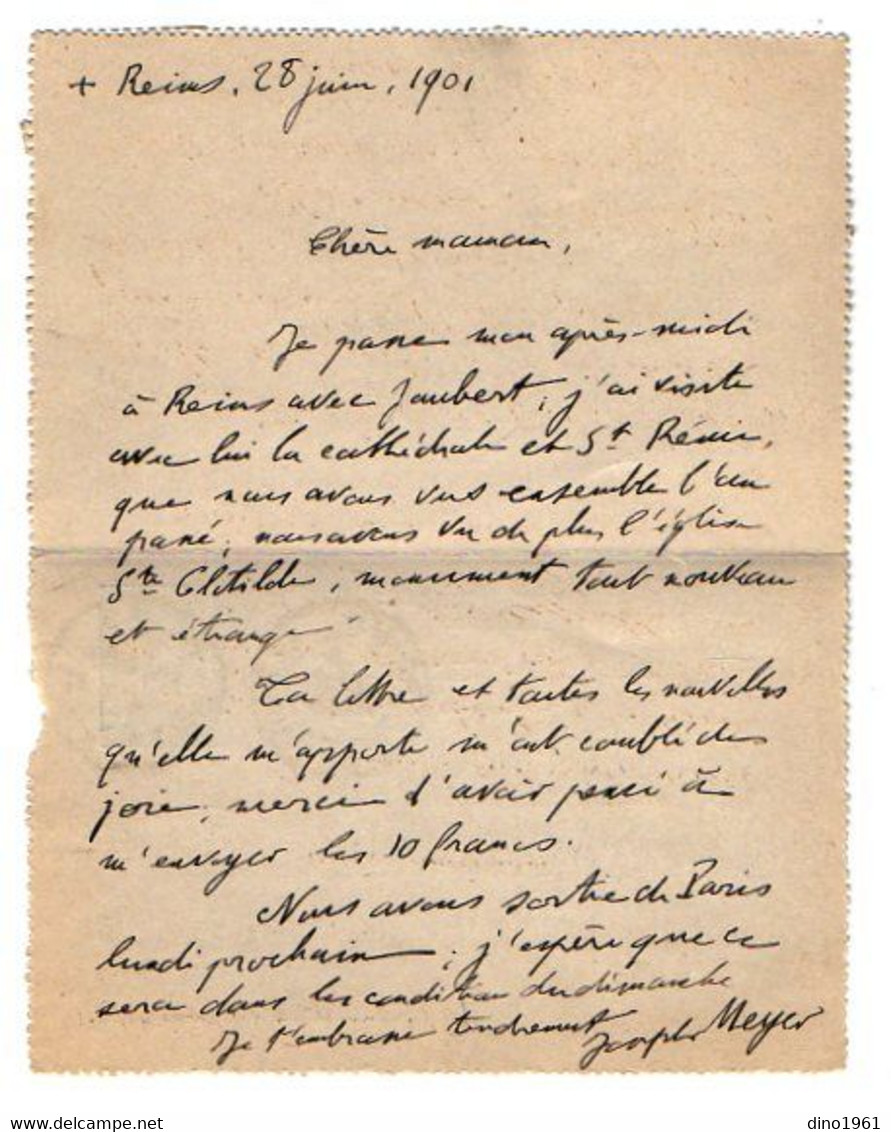 + Reims, 28 juin, 1901
Chère maman,
Je passe mon après-midi
à Reims avec Joubert, j'ai visité
avec lui la cathédrale et St Rémi,
que nous avons vus ensemble l'an
passé; nous avons vu de plus l'église
Ste Clotilde, monument tout nouveau
et étrange
Ta lettre et toutes les nouvelles
qu'elle m'apporte m'ont comblé de
joie, merci d'avoir pensé à
m'envoyer les 10 francs.
Nous avons sortie de Paris
lundi prochain; j'espère que ce
sera dans les condition du dimanche
Je t'embrasse tendrement
Joseph Meyer
www.delcampe.net
dino1961